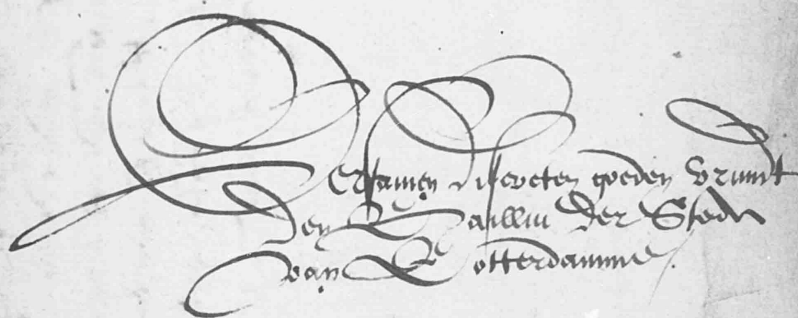 Eersamen discreten goeden vrundt
den Bailliu der Stede
van Rotterdamme